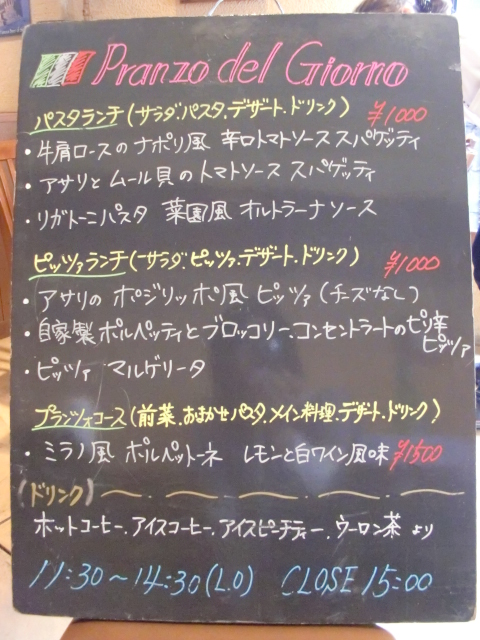 Pranzo del Giorno
パスタランチ(サラダ.パスタ.デザート.ドリンク) ¥1000
・牛肩ロースのナポリ風 辛口トマトソース スパゲッティ
・アサリと ムール貝のトマトソース スパゲッティ
・リガトーニパスタ 菜園風 オルトラーナソース
ピッツァランチ(サラダ.ピッツァ.デザート.ドリンク) ¥1000
・アサリの ポジリッポ風 ピッツァ(チーズなし)
・自家製ポルペッティとブロッコリー.コンセントラートのピリ辛ピッツァ
・ピッツァ マルゲリータ
プランツォコース(前菜.おまかせパスタ.メイン料理.デザート.ドリンク)
・ミラノ風 ポルペットーネ レモンと白ワイン風味 ¥1500
(ドリンク)
ホットコーヒー.アイスコーヒー.アイスピーチティー.ウーロン茶 より
11:30〜14:30(L.O) CLOSE 15:00